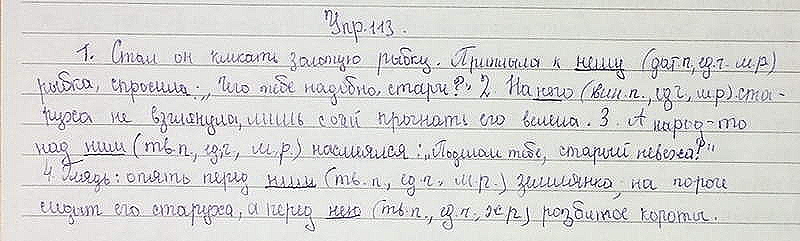 Упр.113.
1. Стал он кликать золотую рыбку. Приплыла к нему (дат.п, ед.ч. м.р)
рыбка, спросила: „Чего тебе надобно, старче?" 2. На него (вин.п., ед.ч, м.р). ста-
руха не взглянула, лишь с очей прогнать его велела. 3. А народ-то
над ним (тв.п, ед.ч, м.р.) насмеялся: „Поделом тебе, старый невежа!"
4. Глядь: опять перед ним (тв.п, ед.ч. м.р.) землянка, на пороге
сидит его старуха, а перед нею (тв.п., ед.ч, ж.р) розбитое корыто.